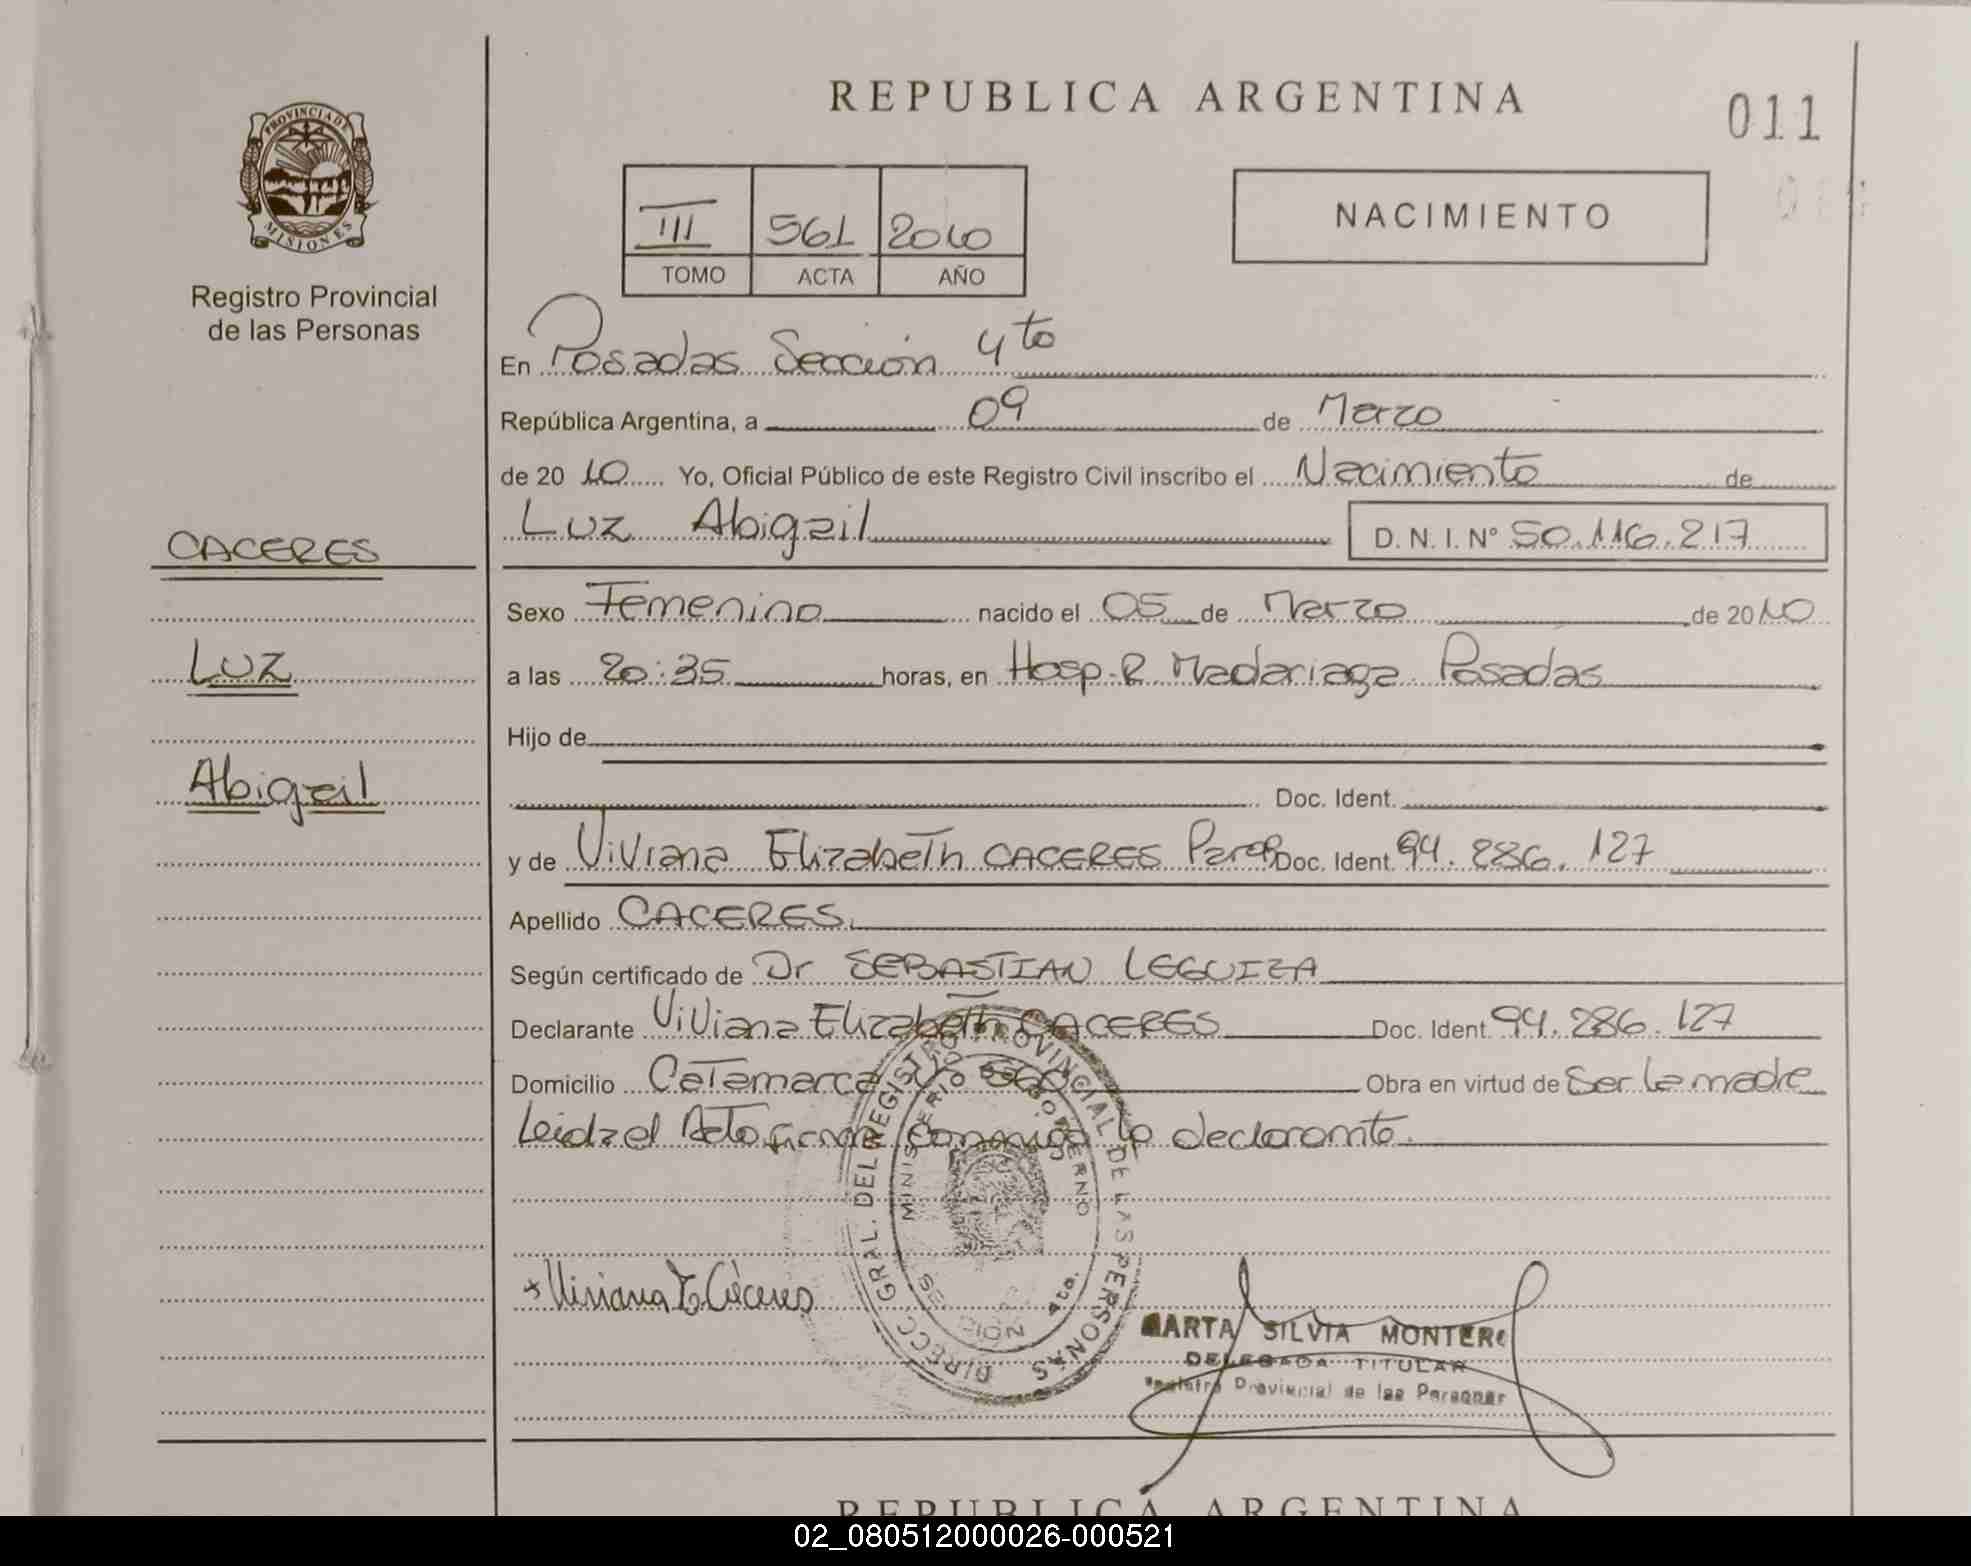 REPUBLICA ARGENTINA
011
PROVINCIA DE
MISIONES
Registro Provincial
de las Personas
III 561 2010
TOMO ACTA AÑO
NACIMIENTO
En Posadas Sección 4to
República Argentina, a 09 de Marzo
de 2010 Yo, Oficial Público de este Registro Civil inscribo el Nacimiento de
Luz Abigail D. N. I. Nº 50.116.217
CACERES
Luz
Abigail
Sexo Femenino nacido el 05 de Marzo de 2010
a las 20:35 horas, en Hosp. R Madariaga Posadas
Hijo de
Doc. Ident.
y de Viviana Elizabeth CACERES Doc. Ident. 94.286.127
Apellido CACERES
Según certificado de Dr SEBASTIAN LEGUIZA
Declarante Viviana Elizabeth CACERES Doc. Ident. 94.286.127
Domicilio Catamarca Obra en virtud de Ser la madre
Leida el Acta firma conmigo la declarante.
DIRECC. GRAL. DEL REGISTRO PROVINCIAL DE LAS PERSONAS
MINISTERIO DE GOBIERNO
4to.
Viviana E Cáceres
MARTA SILVIA MONTERO
DELEGADA TITULAR
Registro Provincial de las Personas
REPUBLICA ARGENTINA
02_080512000026-000521